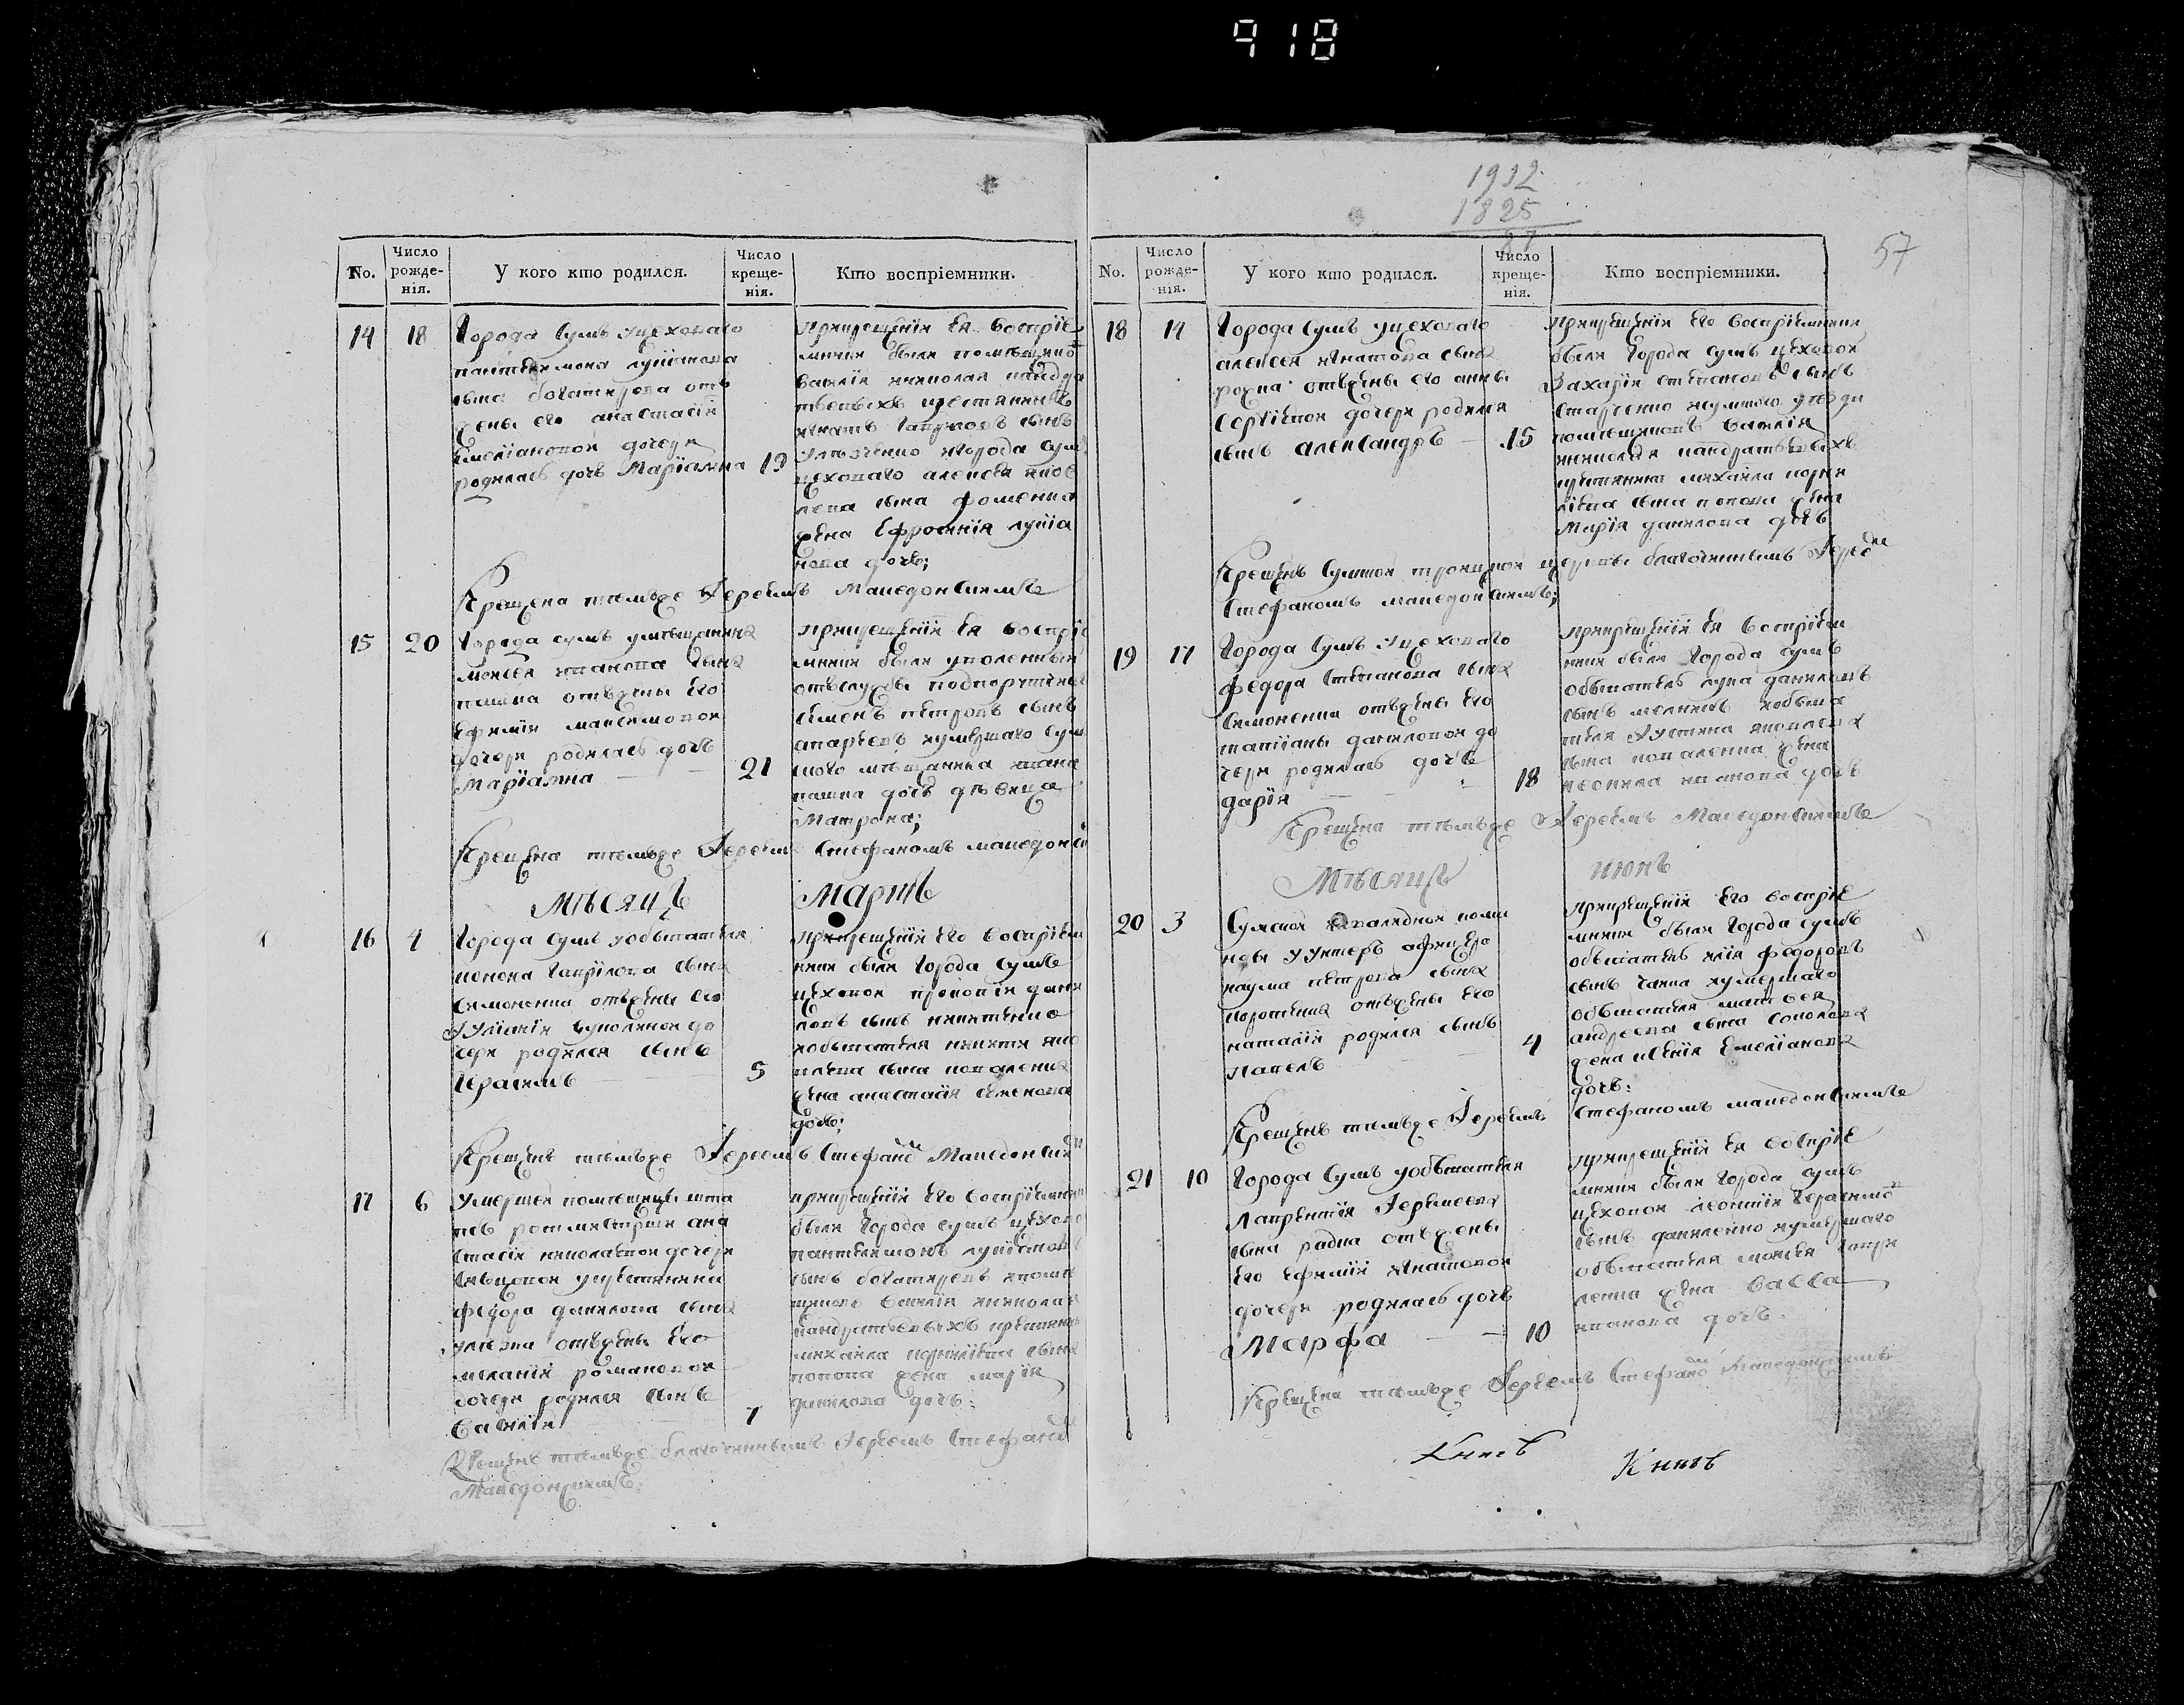 918
No.
Число рожде-нія.
У кого кто родился.
Число креще-нія.
Кто воспріемники.
14
18
Города Сумъ уцеховаго
пантелимона лукіанова
сына богатирова отъ
жены его анастасіи
Емеліановой дочери
родилась дочь Маріамна
19
прикрещеніи Ея воспріе
мники были помѣщиковъ
василія николая кандра
крестянинъ
игнатъ гавриловъ сынъ
игорода сум
цеховаго алексея
сына фоменка
жена Ефросинія лукіа
нова дочь;
Крещена тѣмъже Іереемъ Македонскимъ
15
20
Города сумъ умѣщанина
моисея иванова сына
отъжены Его
Ефиміи максимовой
дочери родилась дочь
Маріамна
21
прикрещеніи Ея воспріе
мники были уволенный
отъслужбы подпоручикъ
семенъ петровъ сынъ
иумершаго сум
ского мѣщанина ивана
дочь дѣвица
Матрона;
Крещена тѣмъже Іереемъ Стефаномъ македонски
Мѣсяцъ Мартъ
16
4
Города Сумъ уобывателя
конона Гаврілова сына
Симоненка отъжены Его
до
чери родился сынъ
Герасимъ
5
прикрещеніи Его воспріем
ники были Города Сумъ
цеховой прокопій дани
ловъ сынъ никитенко
иобывателя никити яко
влева сына коваленка
жена анастасія семенова
дочь;
Крещенъ тѣмъже Іереемъ Стефаномъ Македонским
17
6
Умершей помѣщицы шта
бсъ ротмистрши ана
стасіи николаевой дочери
укрестянина
федора данилова сына
отъжены Его
меланіи романовой
дочери родился сынъ
Василій
7
прикрещеніи Его воспріемник
были Города Сумъ цехово
пантелимонъ лукіановъ
сынъ богатиревъ ипомѣ
щиковъ василія николая
крестянина
михаила корніліева сына
попова жена марія
данилова дочь:
Крещенъ тѣмъже благочиннымъ Іереемъ Стефаномъ
Македонскимъ:
1912
1825
87
57
No.
Число рожде-нія.
У кого кто родился.
Число креще-нія.
Кто воспріемники.
18
14
Города Сумъ уцеховаго
алексея игнатова сына
отъжены его анны
Сергіевой дочери родился
сынъ александръ
15
прикрещеніи Его воспріемники
были Города сумъ цеховой
Захарій степановъ сынъ
старченко
помѣщиковъ василія
николая кандратьевыхъ
крестянина михаила корни
ліева сына попова жена
Марія данилова дочь
Крещенъ Сумской троицкой церкви благочиннымъ Іереемъ
Стефаномъ македонскимъ;
19
17
Города Сумъ уцеховаго
федора Степанова сына
Симоненка отъжены Его
татіаны даниловой до
чери родилась дочь
дарія
18
прикрещеніи Ея воспріем
ники были Города сумъ
обыватель лука даниловъ
сынъ мелникъ иобыва
теля Устина яковлева
сына коваленка жена
неонила иванова дочь
Крещена тѣмъже Іереемъ Македонскимъ
Мѣсяцъ июнь
20
3
Сумской инвалидной кома
нды уунтеръ афицера
наума петрова сына
отъжены Его
наталіи родился сынъ
павелъ
4
прикрещеніи Его воспріе
мники были Города сумъ
обыватель илія федоровъ
сынъ иумершаго
обывателя матвея
андреева сына соколова
жена Емеліанова
дочь:
Крещенъ тѣмъже Іереемъ Стефаномъ македонскимъ
21
10
Города Сумъ уобывателя
Лаврентія Іеремеева
сына отъжены
Его Ефиміи игнатовой
дочери родилась дочь
Марфа
10
прикрещеніи Ея воспріе
мники были Города сумъ
цеховой леонтій Герасимовъ
сынъ даниленко иумершаго
обывателя моисея гаври
ленка жена васса
иванова дочь.
Крещена тѣмъже Іереемъ Стефаномъ Македонскимъ